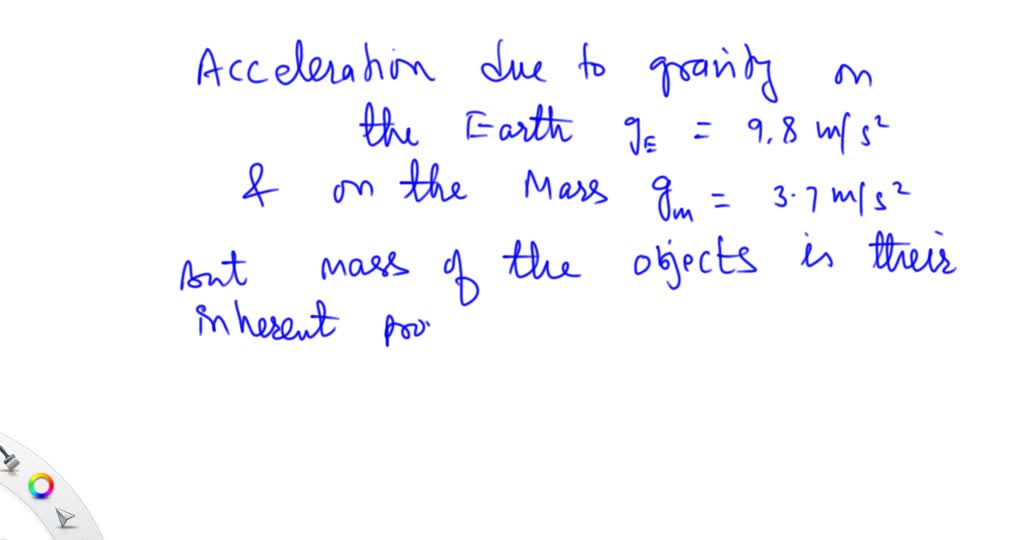 Acceleration due to gravity on
the Earth gE = 9.8 m/s²
& on the Mass gm = 3.7 m/s²
but mass of the objects is their
inherent pro